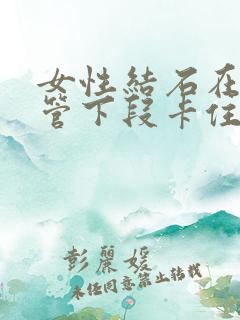 女性結石在
管下段卡住
彭麗媛
未经同意禁止转载